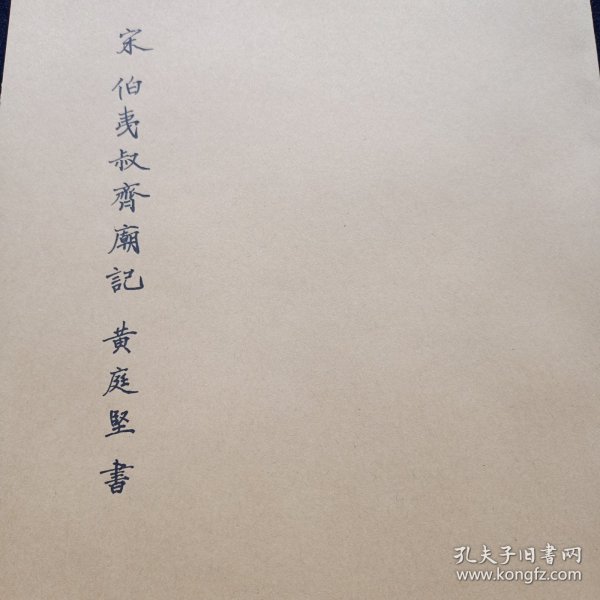 宋 伯夷叔齊廟記 黃庭堅 書
孔夫子旧书网
www.kongfz.com